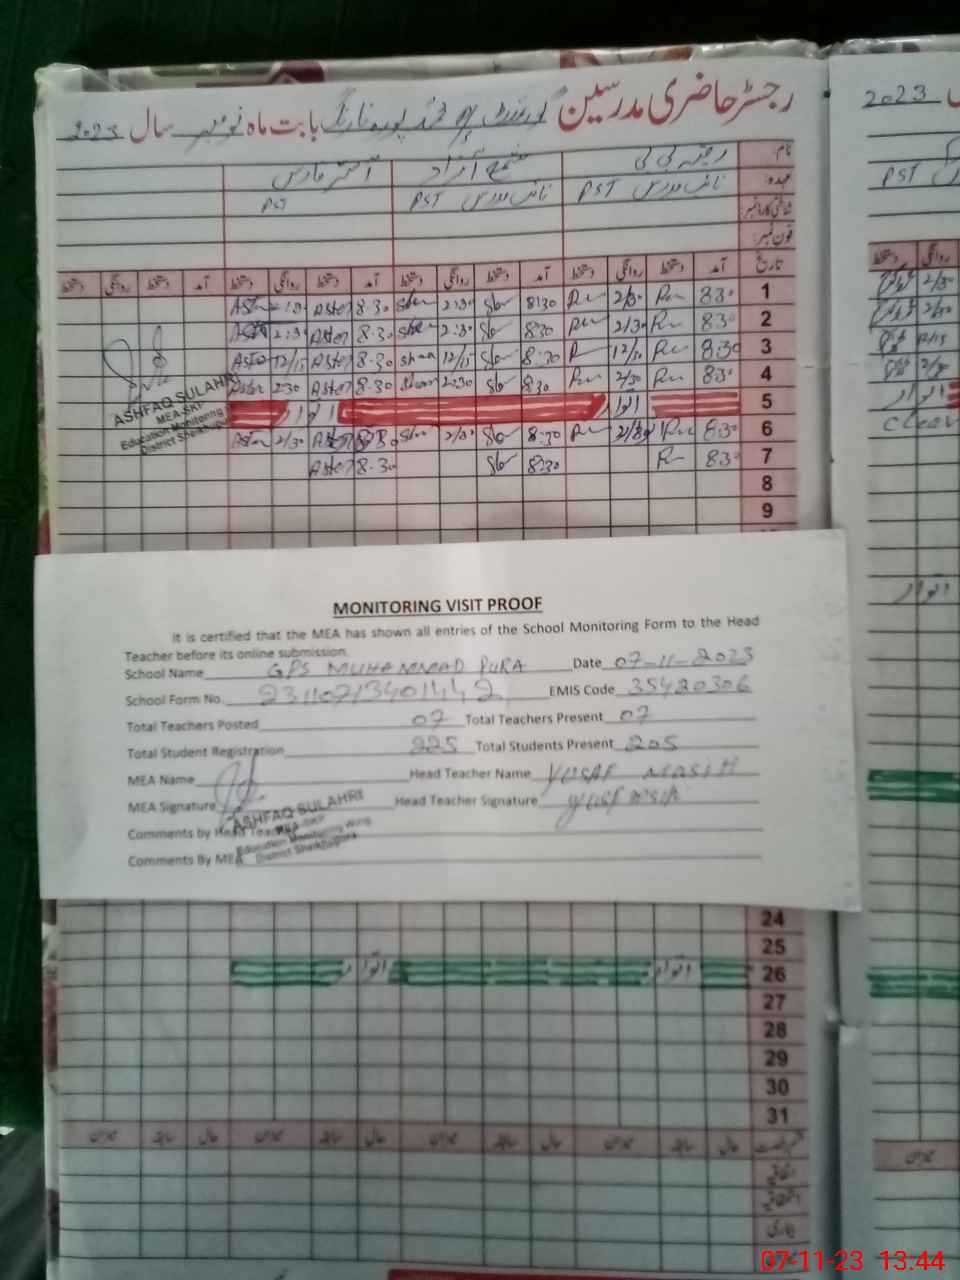 رجسٹر حاضری مدرسین گورنمنٹ بابت ماہ نومبر سال 2023
2023
نام
رضیہ بی بی
آستر فارس
عہدہ
نائب مدرس PST
نائب مدرس PST
PST
PST
شناختی کارڈ نمبر
فون نمبر
تاریخ آمد دستخط روانگی دستخط آمد دستخط روانگی دستخط آمد دستخط روانگی دستخط آمد دستخط روانگی دستخط
1 8:30 2/30 8:30 2:30 Aster 8.30 Aster 2:30
2 8:30 2/30 8:30 2:30 Aster 8.30 Aster 2:30
3 8:30 12/15 8:30 12/15 Aster 8.30 Aster 12/15
4 8:30 2/30 8:30 2:30 Aster 8.30 Aster 2:30
5 اتوار اتوار
6 8:30 2/30 8:30 Aster 8:30 Aster 2/30
7 8:30 8:30 Aster 8.30
8
9
ASHFAQ SULAHRI
MEA-SKP
Education Monitoring
District Sheikhupura
اتوار
Clear
اتوار
MONITORING VISIT PROOF
It is certified that the MEA has shown all entries of the School Monitoring Form to the Head
Teacher before its online submission.
School Name GPS MUHAMMAD PURA Date 07-11-2023
School Form No. 23110713401442 EMIS Code 35420306
Total Teachers Posted 07 Total Teachers Present 07
Total Student Registration 225 Total Students Present 205
MEA Name Head Teacher Name YUSAF MASIH
MEA Signature Head Teacher Signature Yusaf Masih
Comments by Head Teacher
Comments By MEA
ASHFAQ SULAHRI
MEA-SKP
Education Monitoring Wing
District Sheikhupura
24
25
26 اتوار اتوار
27
28
29
30
31
حال سابقہ میزان حال سابقہ میزان حال سابقہ میزان حال سابقہ میزان
میزان
اتفاقیہ
بیماری
07-11-23 13.44